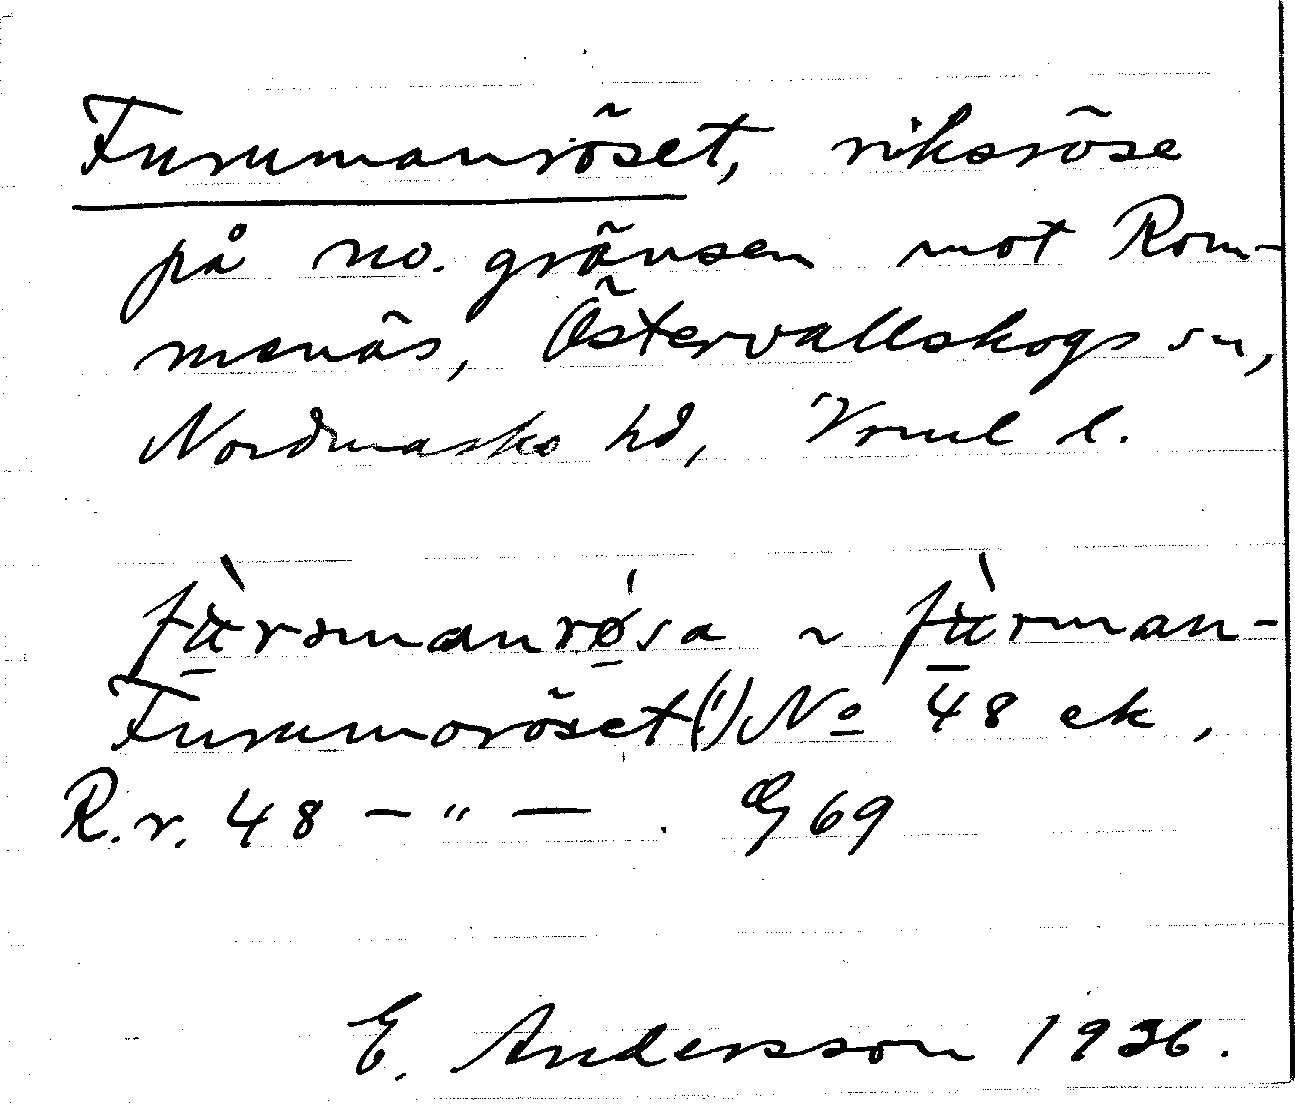 Furumanröset, riksröse
på no. gränsen mot Rom-
menäs, Östervallskogs sn,
Nordmarks hd, Vrml l.
fù̵̲rəmanrǿ̲sa ~ fù̵̲rman-
Furumoröset(!) No 48 ek,
R.r. 48 — " — . G 69
E. Andersson 1936.